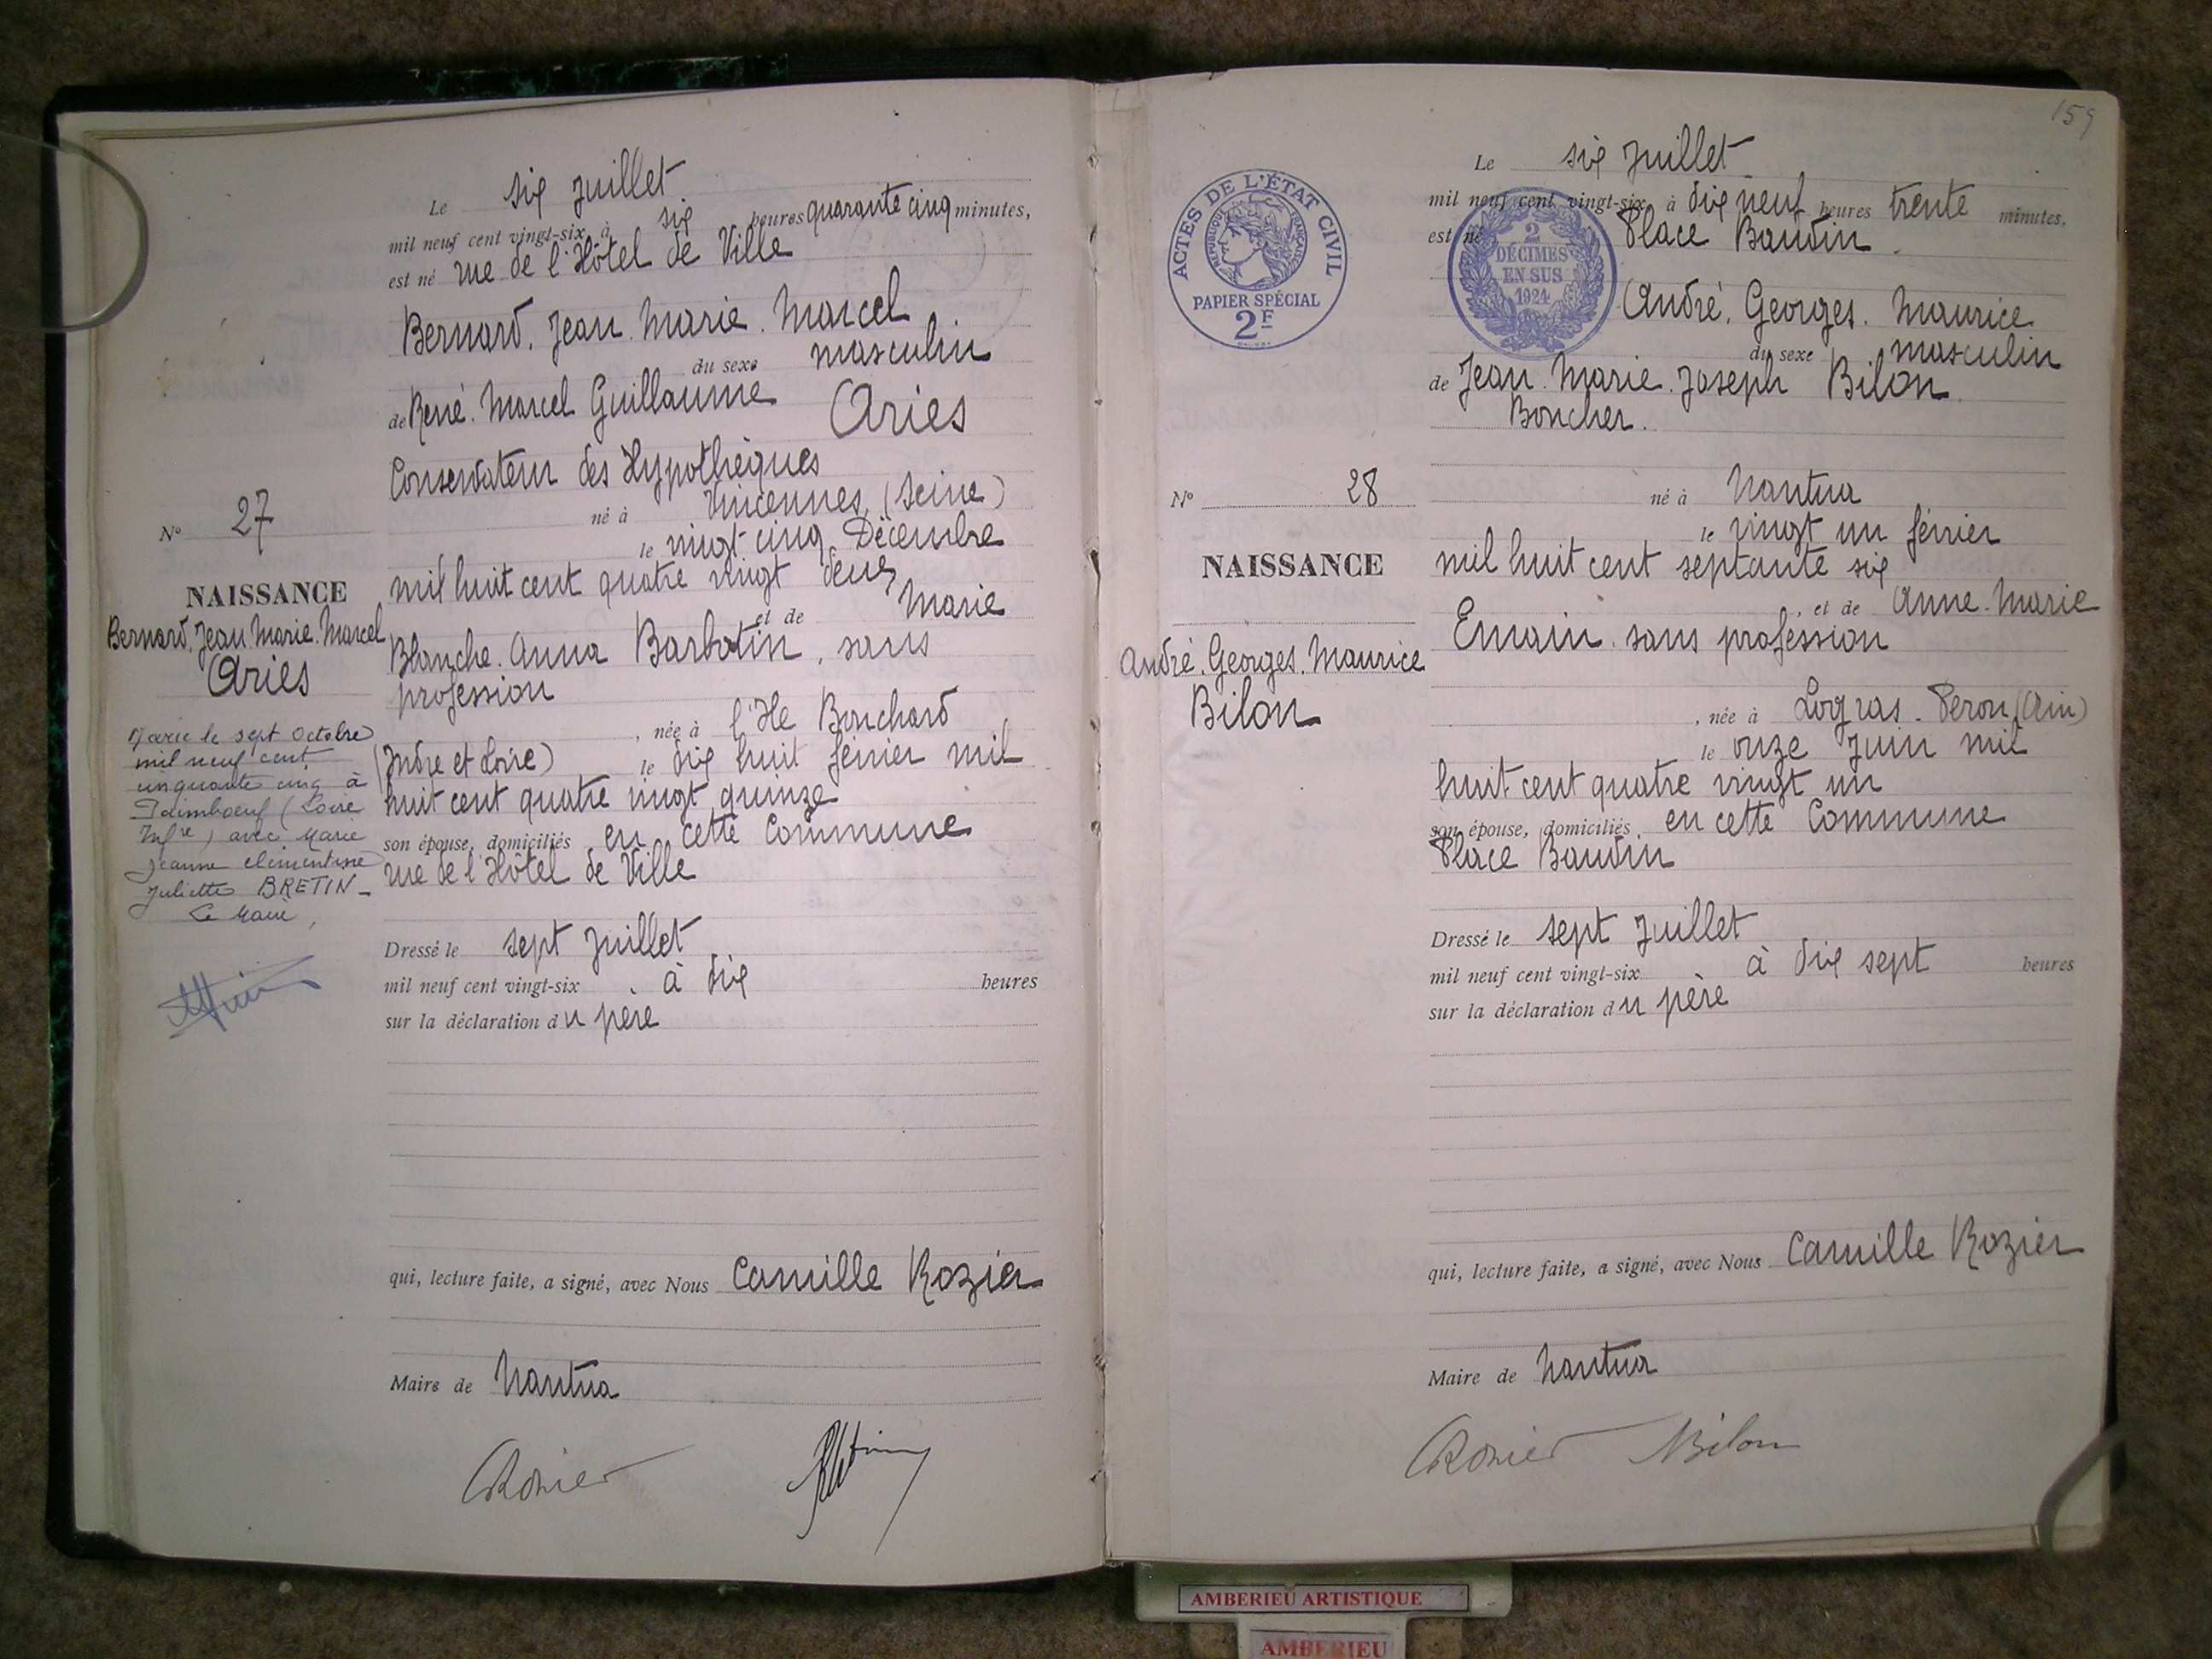 Le six Juillet
mil neuf cent vingt-six à six heures quarante cinq minutes,
est né rue de l'Hôtel de Ville
Bernard. Jean. Marie. Marcel
du sexe masculin
de René. Marcel Guillaume Aries
Conservateur des Hypothèques
né à Vincennes, (Seine)
le vingt cinq Décembre
mil huit cent quatre vingt deux
et de Marie
Blanche. Anna Barbotin, sans
profession
, née à l'Ile Bouchard
(Indre et Loire) le dix huit février mil
huit cent quatre vingt quinze
son épouse, domiciliés en cette Commune
rue de l'Hôtel de Ville
Dressé le sept Juillet
mil neuf cent vingt-six à dix heures
sur la déclaration du père
qui, lecture faite, a signé, avec Nous Camille Rozier
Maire de Nantua
Rozier
N° 27
NAISSANCE
Bernard. Jean. Marie. Marcel
Aries
Marié le sept Octobre
mil neuf cent
cinquante cinq à
Paimboeuf (Loire
Infre) avec Marie
Jeanne Clémentine
Juliette BRETIN_
Le Maire,
159
ACTES DE L'ÉTAT CIVIL
RÉPUBLIQUE FRANÇAISE
PAPIER SPÉCIAL
2F
2
DÉCIMES
EN SUS
1924
Le six Juillet
mil neuf cent vingt-six à dix neuf heures trente minutes,
est né Place Baudin
André. Georges. Maurice
du sexe masculin
de Jean. Marie. Joseph Bilon
Boucher.
né à Nantua
le vingt un février
mil huit cent septante six
, et de Anne. Marie
Emain. sans profession
, née à Logras. Peron (Ain)
le onze Juin mil
huit cent quatre vingt un
son épouse, domiciliés en cette Commune
Place Baudin
Dressé le sept Juillet
mil neuf cent vingt-six à dix sept heures
sur la déclaration du père
qui, lecture faite, a signé, avec Nous Camille Rozier
Maire de Nantua
Rozier Bilon
N° 28
NAISSANCE
André. Georges. Maurice
Bilon
AMBERIEU ARTISTIQUE
AMBERIEU